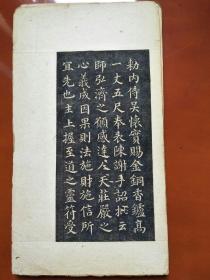 勅内侍吳懷實賜金銅香鑪高
一丈五尺奉表陳謝手詔批云
師弘濟之願感達人天莊嚴之
心義成因果則法施財施信所
宜先也主上握至道之靈符受